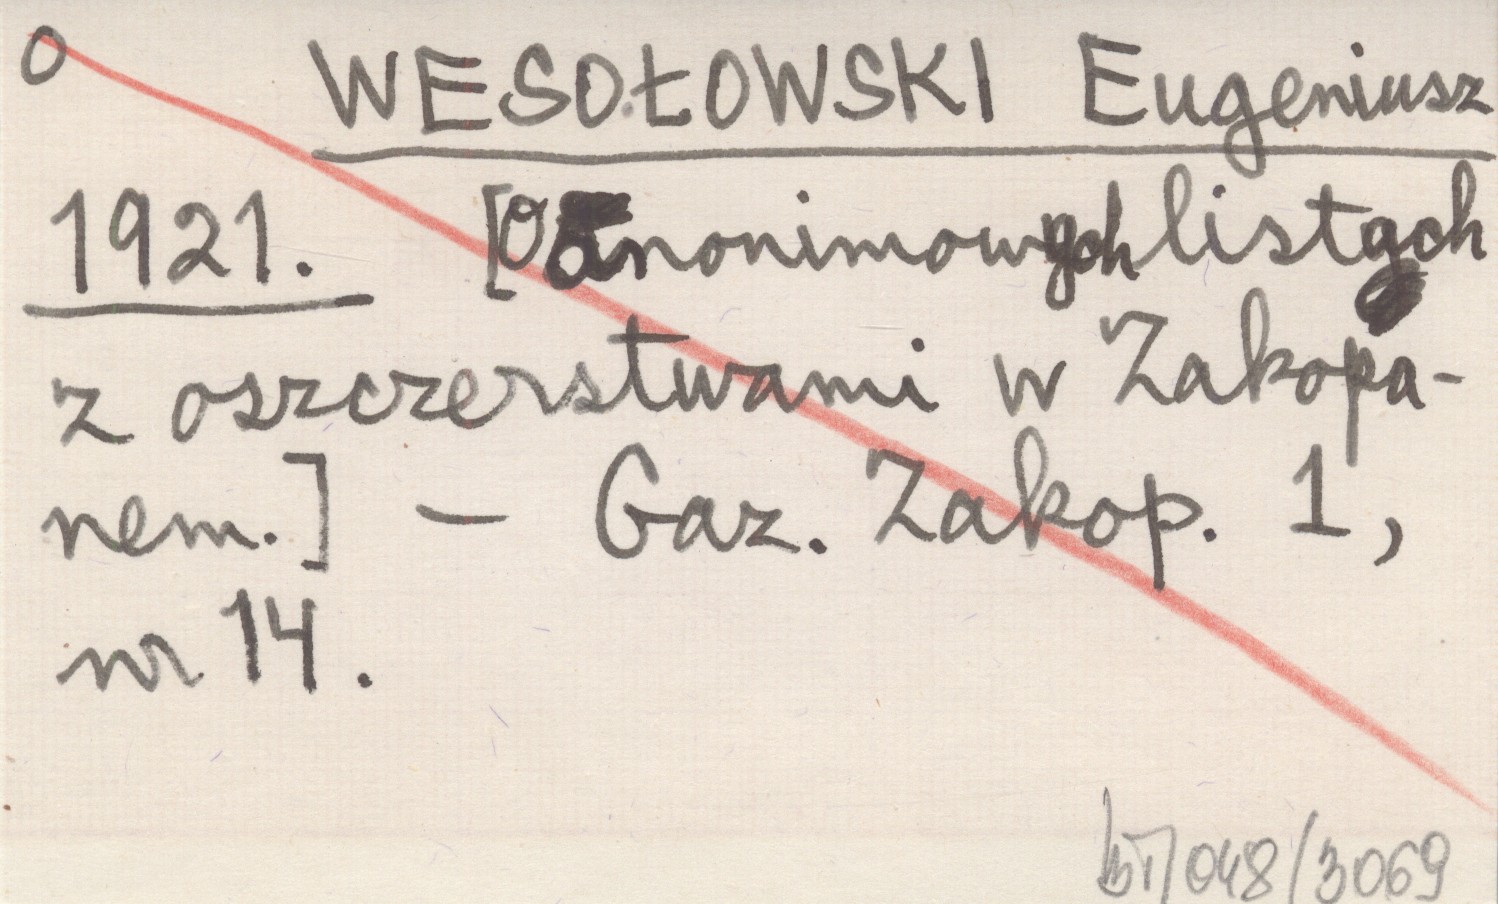 O WESOŁOWSKI Eugeniusz
1921. [O anonimowych listach
z oszczerstwami w Zakopa-
nem.] – Gaz. Zakop. 1,
nr 14.
/048/3069